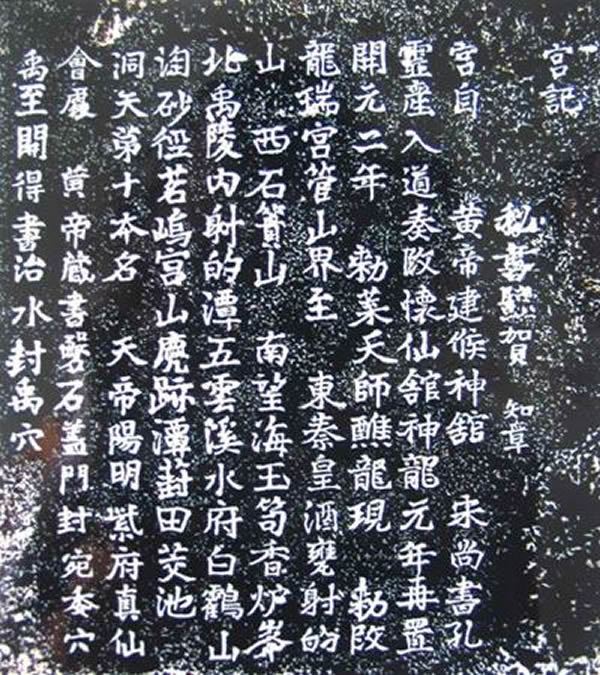 宮記
秘書監賀 知章
宮自 黃帝建候神舘 宋尚書孔
靈產入道奏改懷仙舘神龍元年再置
開元二年 勅葉天師醮龍現 勅改
龍瑞宮管山界至 東秦皇酒甕射的
山 西石簣山 南望海玉笥香炉峯
北禹陵內射的潭五雲溪水府白鶴山
淘砂徑茗嶋宮山鹿跡潭葑田茭池
洞天第十本名 天帝陽明紫府真仙
會處 黃帝藏書磐石蓋門封宛委穴
禹至開得書治水封禹穴